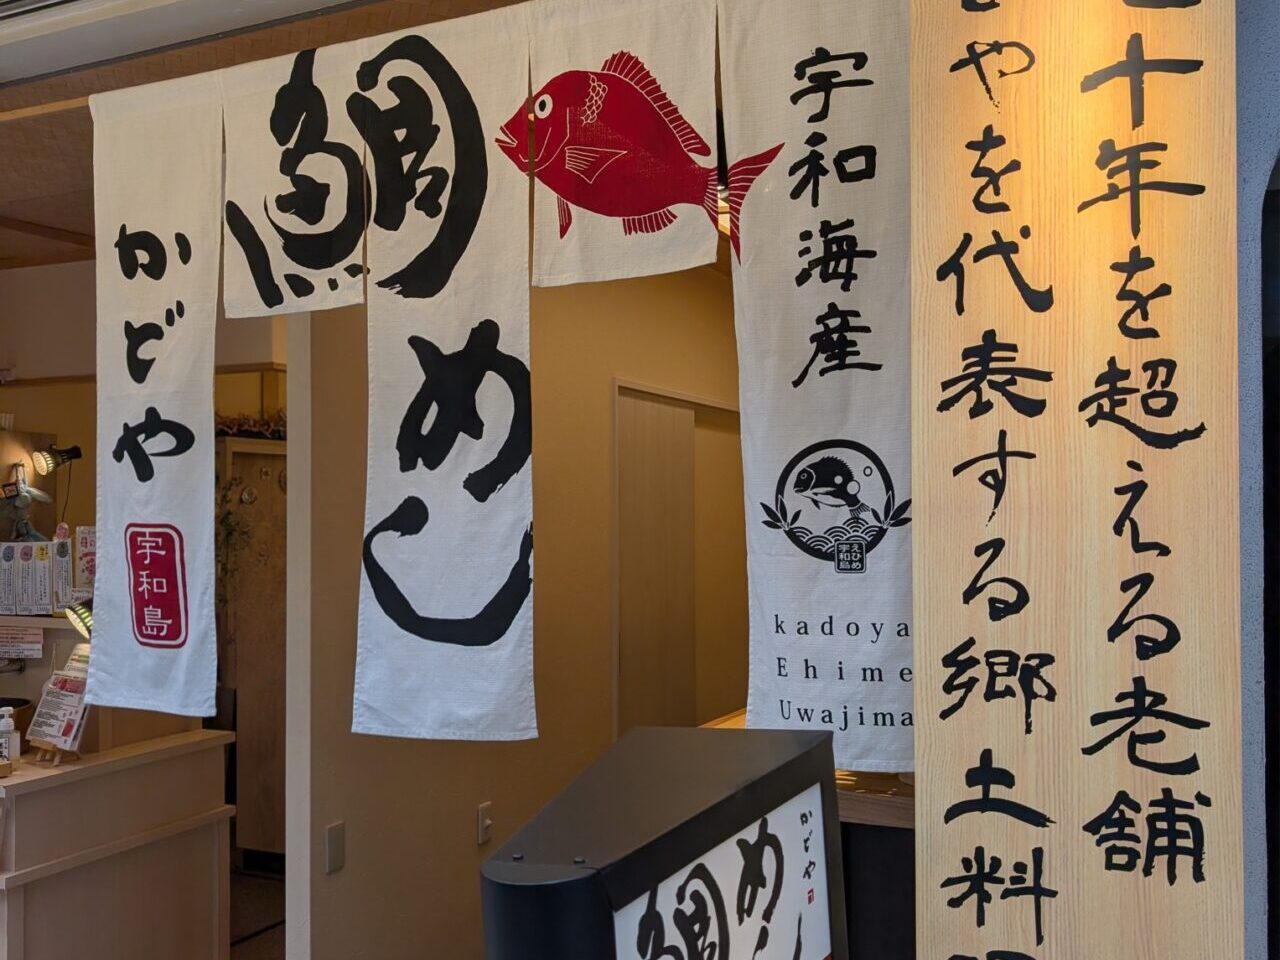 かどや
宇和島
鯛めし
宇和海産
えひめ
宇和島
kadoya
Ehime
Uwajima
十年を超える老舗
どやを代表する郷土料理
かどや
鯛めし